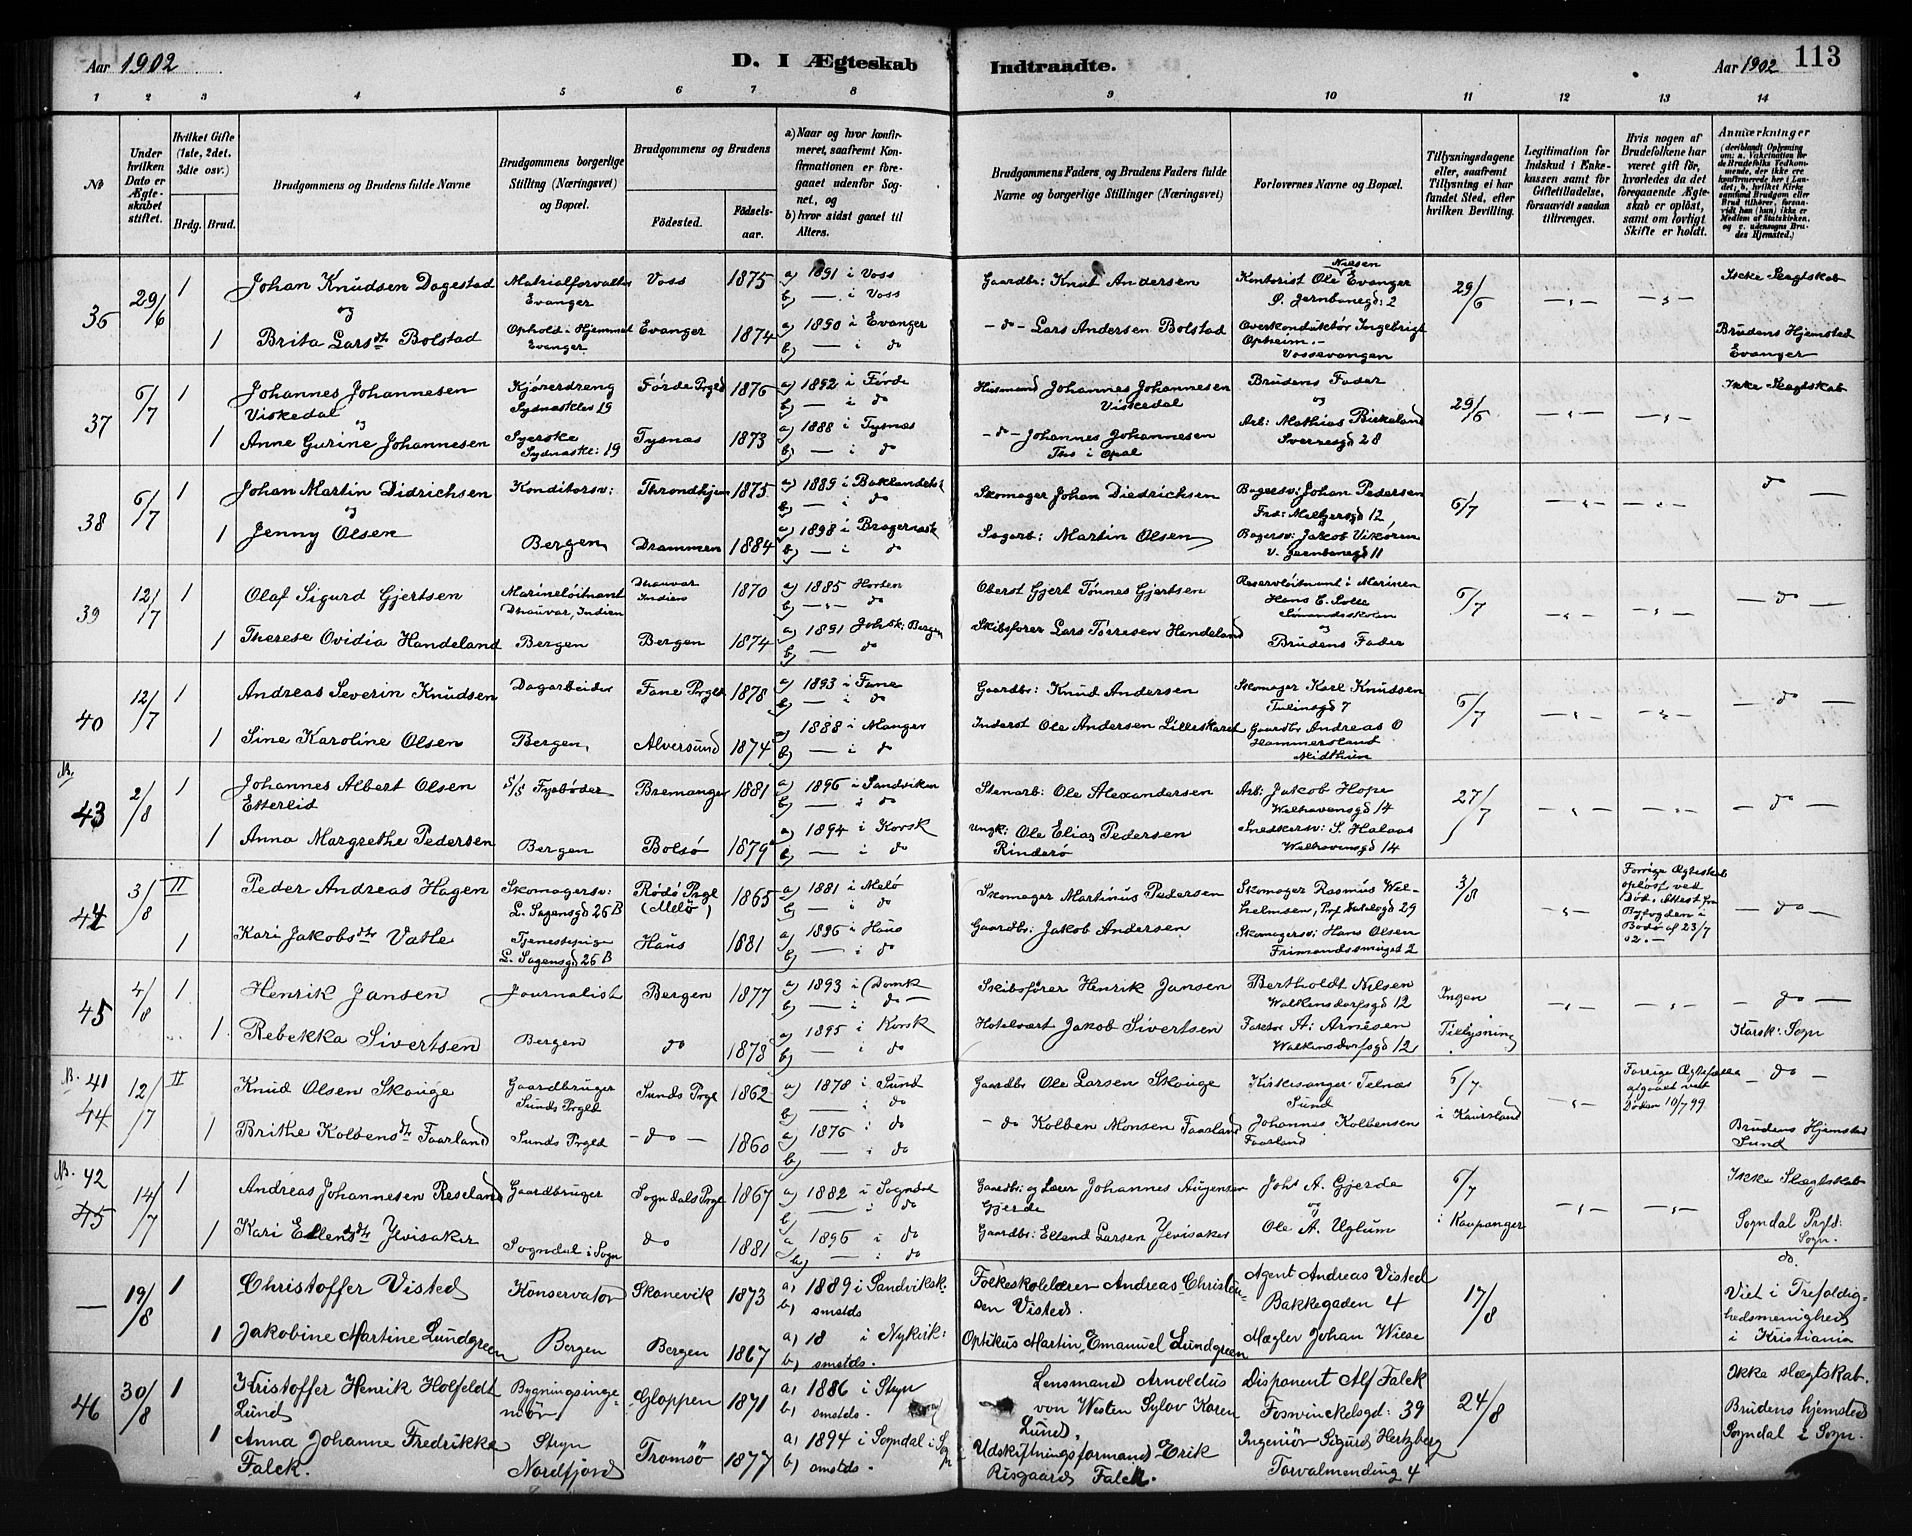 Aar 1902
D. I Ægteskab Indtraadte.
Aar 1902 113
1 2 3 4 5 6 7 8 9 10 11 12 13 14
No
Under hvilken Dato er Ægteskabet stiftet.
Hvilket Gifte (1ste, 2det. 3die osv.)
Brdg. Brud.
Brudgommens og Brudens fulde Navne
Brudgommens borgerlige Stilling (Næringsvei) og Bopæl.
Brudgommens og Brudens
Fødested. Fødselsaar.
a) Naar og hvor konfirmeret, saafremt Konfirmationen er foregaaet udenfor Sognet, og
b) hvor sidst gaaet til Alters.
Brudgommens Faders, og Brudens Faders fulde Navne og borgerlige Stillinger (Næringsvei)
Forlovernes Navne og Bopæl.
Tillysningsdagene eller, saafremt Tillysning ei har fundet Sted, efter hvilken Bevilling.
Legitimation for Indskud i Enkekassen samt for Giftetilladelse, forsaavidt saadan tiltrænges.
Hvis nogen af Brudefolkene har været gift før, hvorledes da det foregaaende Ægteskab er opløst, samt om lovligt Skifte er holdt.
Anmærkninger
36 29/6 1 Johan Knudsen Dagestad Matrialforvalter Evanger Voss 1875 a) 1891 i Voss b) — i Voss Gaardbr: Knut Andersen Kontorist Ole Nielsen Evanger Ø. Jernbanegd: 2 29/6 Ikke Slægtskab
og
1 Brita Larsdtr Bolstad Ophold i Hjemmet Evanger Evanger 1874 a) 1890 i Evanger b) — i do - do - Lars Andersen Bolstad Overkonduktør Ingebrigt Opheim. - Vossevangen Brudens Hjemsted Evanger
37 6/7 1 Johannes Johannesen Viskedal Kjøredreng Sydnæsklev 19 Førde Prgld 1876 a) 1892 i Førde b) — i do Husmand Johannes Johannesen Viskedal Brudens Fader 29/6 Ikke Slægtskab
og
1 Anne Gurine Johannesen Syerske Sydnæskl: 19 Tysnæs 1873 a) 1888 i Tysnæs b) — i do - do - Johannes Johannesen Arb: Mathias Birkeland Sverresgd 28
38 6/7 1 Johan Martin Didrichsen Konditorsv: Throndhjem 1875 a) 1889 i Baklandet b) — i do Skomager Johan Diedrichsen Bagersv: Johan Pedersen Frd: Meltzersgd 12 6/7 do
og
1 Jenny Olsen Bergen Drammen 1884 a) 1898 i Bragernæsk b) — i do Sagarb: Martin Olsen Bagersv: Jakob Vikøren V. Jernbanegd 11
39 12/7 1 Olaf Sigurd Gjertsen Marineløitnant Dhauvar, Indien Dhauvar Indien 1870 a) 1885 Horten b) do Oberst Gjert Tønnes Gjertsen Reserveløitnant i Marinen Hans E. Sølle Sømandsskolen 6/7 do
og
1 Therese Ovidia Handeland Bergen Bergen 1874 a) 1891 Johsk: Bergen b) — do Skibsfører Lars Tørresen Handeland Brudens Fader
40 12/7 1 Andreas Severin Knudsen Dagarbeider Fane Prgld 1878 a) 1893 i Fane b) — i do Gaardbr: Knud Andersen Skomager Karl Knudsen Tulinsgd 7 6/7 do
1 Sine Karoline Olsen Bergen, Alversund 1874 a) 1888 i Manger b) — i do Inderst Ole Andersen Lilleskaret Gaardbr Andreas O Hammersland Midthun
N. 43 2/8 1 Johannes Albert Olsen Etterlid S/S Fyrbøder Bremanger 1881 a) 1896 i Sandviken b) — i do Stenarb: Ole Alexandersen Arb: Jakob Hope Welhavensgd 14 27/7 do
1 Anna Margrethe Pedersen Bergen Bolsø 1879 a) 1894 i Korsk b) — i do Ungk: Ole Elias Pedersen Rinderø Snedkersv: S. Halaas Welhavensgd 14
44 3/8 II Peder Andreas Hagen Skomagersv: L. Sagensgd 26 B Rødø Prgl (Melø) 1865 a) 1881 i Melø b) — i do Skomager Martinus Pedersen Skomager Rasmus Welhelmsen, 29 3/8 Forrige Ægteskab opløst ved Død. Attest fra Byfogden i Bodø af 23/7 02. do
1 Kari Jakobsdtr Vatle Tjenestepige L. Sagensgd 26 B Haus 1881 a) 1896 i Haus b) — i do Gaardbr: Jakob Andersen Skomagersv: Hans Olsen Frimandssmuget 2
45 4/8 1 Henrik Jansen Journalist Bergen 1877 a) 1893 i Domk b) — do Skibsfører Henrik Jansen Bertholdt Nilsen Walkendorfsgd 12 Ingen do
1 Rebekka Sivertsen Bergen do 1878 a) 1895 i Korsk b) — i do Hotelvært Jakob Sivertsen Faktor A: Arnesen Walkendorfsgd 12 Tillysning Karsk: Sogn
N. 41 44 12/7 II Knud Olsen Skouge Gaardbruger Sunds Prgld Sunds Prgl 1862 a) 1878 i Sund b) — i do Gaardbr Ole Larsen Skouge Kirkesanger Telnæs Sund 6/7 i Kausland Forrige Ægtefælle afgaaet ved Døden 10/7 99 do
1 Brithe Kolbensdtr Faarland Sunds Prgld - do - 1860 a) 1876 i do b) — i do - do Kolben Monsen Faarland Johannes Kolbensen Faarland Brudens Hjemsted Sund
N. 42 45 14/7 1 Andreas Johannesen Reseland Gaardbruger Sogndals Prgl 1867 a) 1882 i Sogndal b) — i do Gaardbr: og Lærer Johannes Augensen Gjerde Johs A. Gjerde 6/7 i Kaupanger Ikke Slægtskab
og
1 Kari Ellendsdtr Ylvisaker Sogndal i Sogn do 1881 a) 1896 i do b) — i do Gaardbr: Ellend Larsen Ylvisaker Ole A. Uglum Sogndal Prgld: Sogn.
— 19/8 1 Christoffer Visted Konservator Skonevik 1873 a) 1889 i Sandviksk. b) smstds Folkeskolelærer Andreas Christensen Visted. Agent Andreas Visted Bakkegaden 4 17/8 do. Viet i Trefoldighedsmenighed i Kristiania
1 Jakobine Martine Lundgreen Bergen Bergen 1867 a) 18 i Nykirk: b) smstds. Optikus Martin Emanuel Lundgreen Mægler Johan Wiese
46 30/8 1 Kristoffer Henrik Holfeldt Lund Bygningsingeniør Gloppen 1871 a) 1886 i Stryn b) smstds. Lensmand Arnoldus von Westen Sylov Karen Lund. Disponent Alf Falck Foswinckelsgd: 39 24/8 Ikke slægtskab.
1 Anna Johanne Fredrikke Falck. Stryn Nordfjord Tromsø 1877 a) 1894 i Sogndal i Sogn b) smstds. Udskiftningsformand Erik Risgaard Falck. Ingeniør Sigurd Hertzberg Torvalmending 4 Brudens hjemsted Sogndal i Sogn.